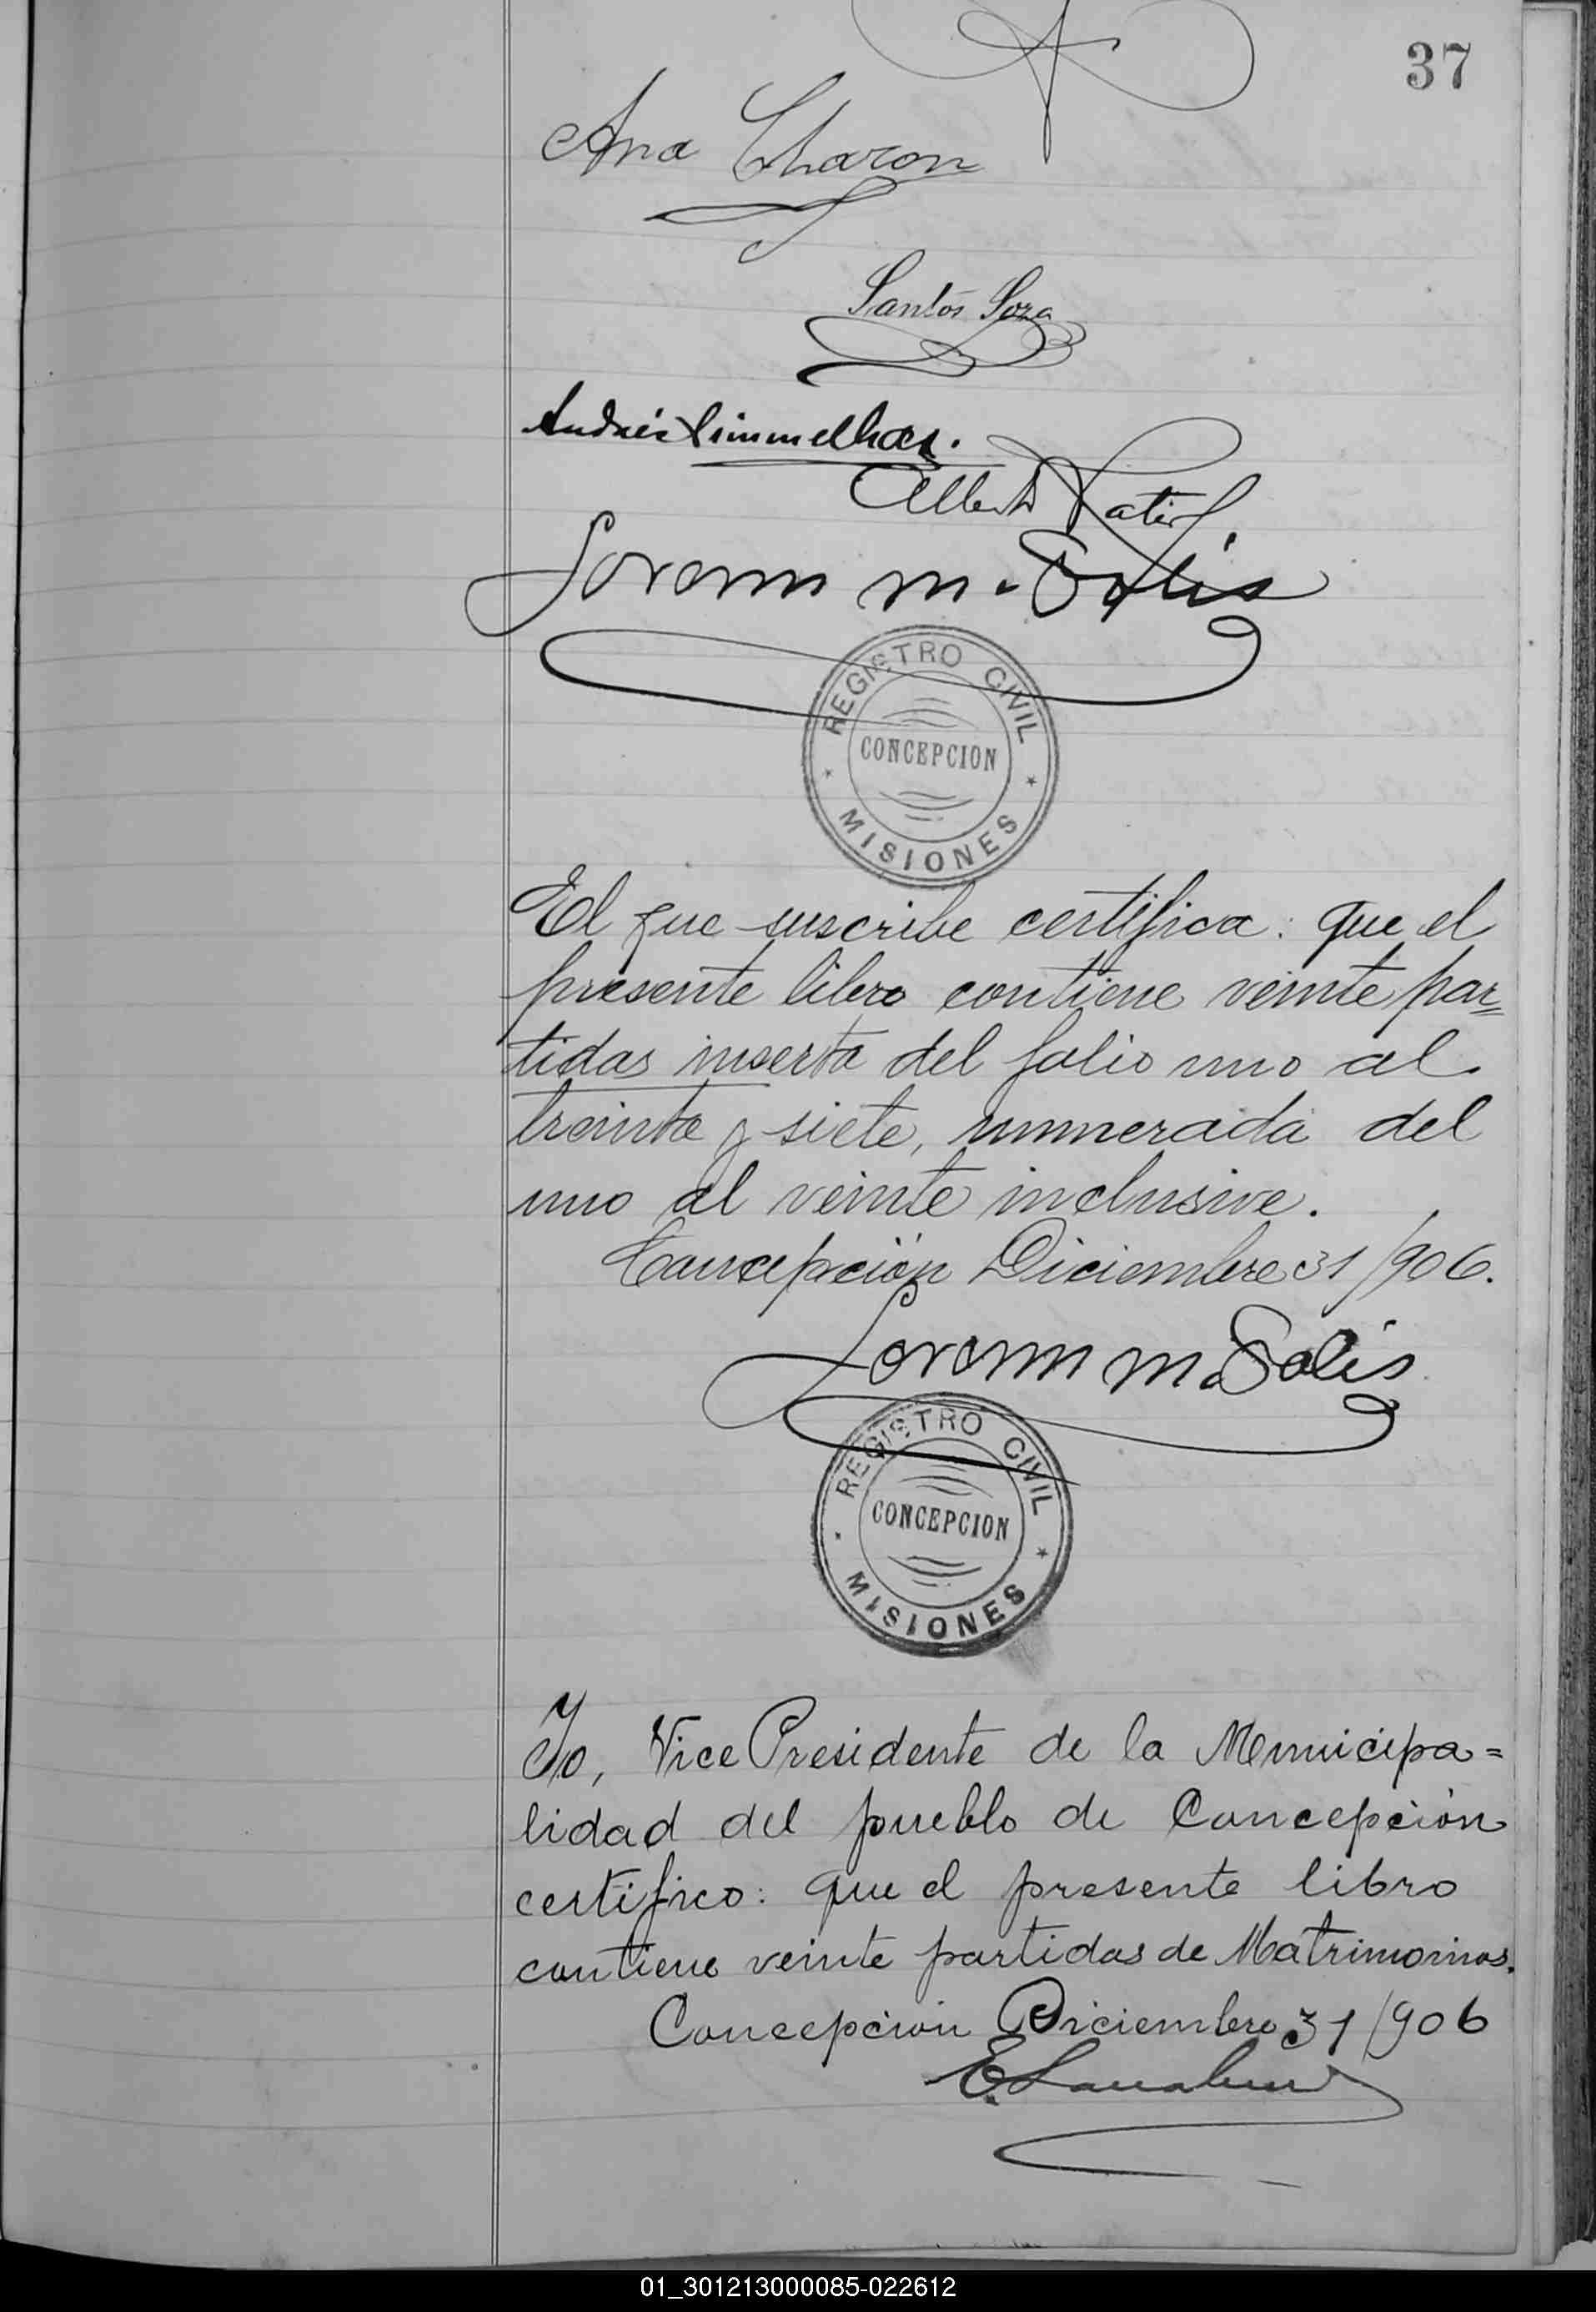 37
Ana Charon
Santos Soza
Andrés
Alberto
m. Solis
REGISTRO CIVIL
CONCEPCION
MISIONES
El que suscribe certifica: que el
presente libro contiene veinte par=
tidas inserta del folio uno al
treinta y siete, numerada del
uno al veinte inclusive.
Concepción Diciembre 31/906.
m. Solis
REGISTRO CIVIL
CONCEPCION
MISIONES
Yo, Vice Presidente de la Municipa=
lidad del pueblo de Concepción
certifico: que el presente libro
contiene veinte partidas de Matrimonios.
Concepción Diciembre 31/906
E.
01_301213000085-022612